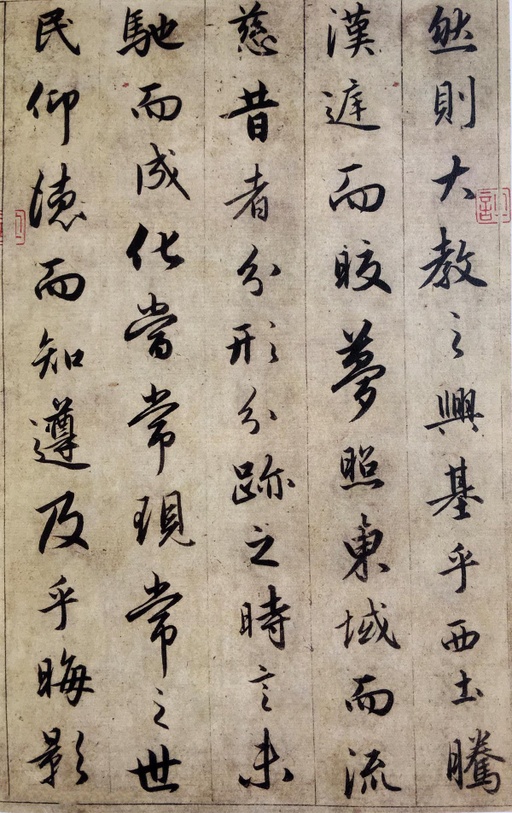 然則大教之興基乎西土騰
漢遅而晈夢照東域而流
慈昔者分形分跡之時言未
馳而成化當常現常之世
民仰德而知遵及乎晦影